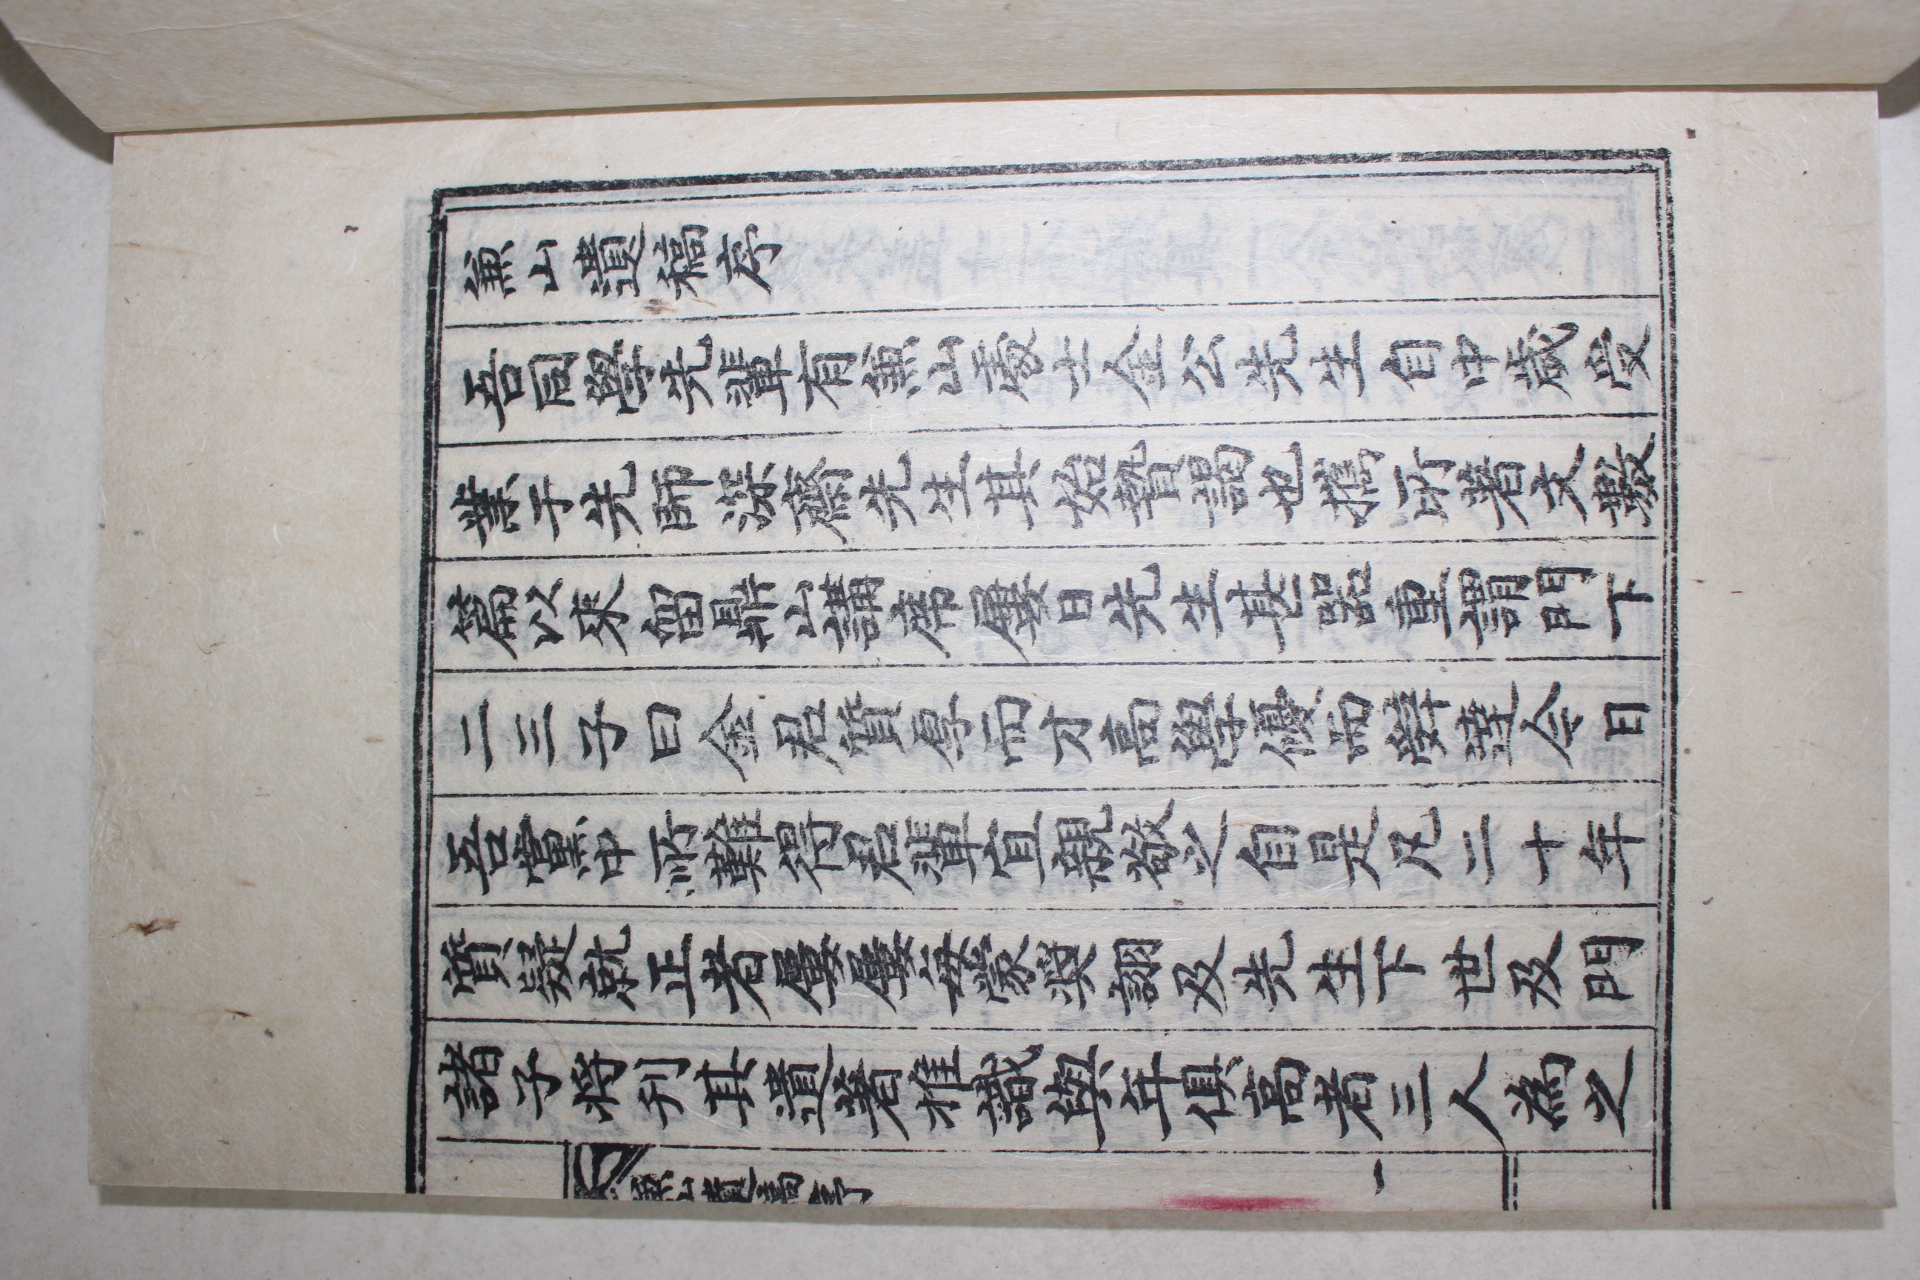 兼山遺稿序
吾同學先輩有兼山處士金公先生自中歲受
業于先師深齋先生其始贄謁也攜所著文數
篇以來留鼎山講席屢日先生甚器重謂門下
二三子曰金君質厚而才高學優而辤達今日
吾黨中所難得君輩宜親敬之自是凡二十年
質疑就正者屢屢每蒙奬詡及先生下世及門
諸子將刊其遺著推識與年俱高者三人為之
兼山遺稿序
一